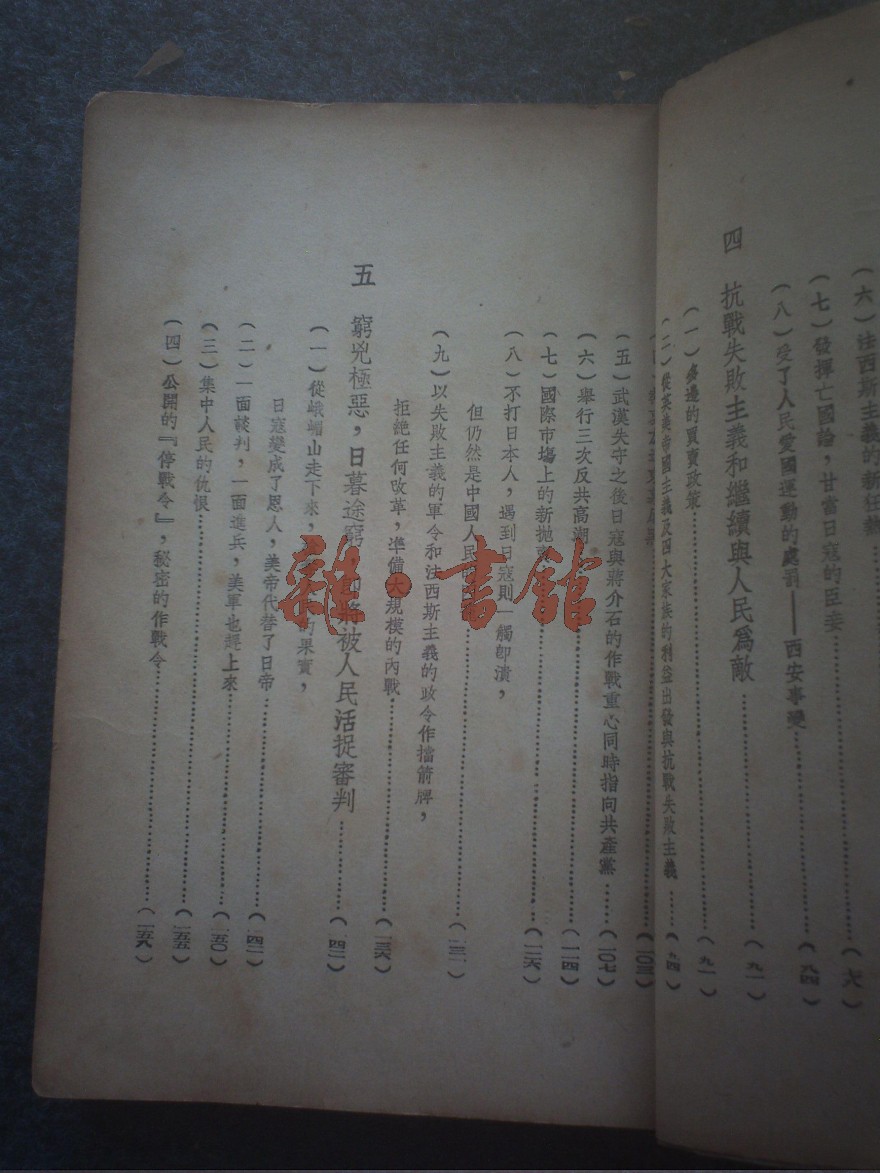 (六)法西斯主義的新任務……(八六)
(七)發揮亡國論，甘當日寇的臣妾
(八)受了人民愛國運動的處罰——西安事變……(八四)
四 抗戰失敗主義和繼續與人民爲敵……(九一)
(一) 的買賣政策……(九一)
(二)從英美帝國主義及四大家族的利益出發與抗戰失敗主義……(九四)
(一〇三)
(五)武漢失守之後日寇與蔣介石的作戰重心同時指向共產黨……(一〇七)
(六)舉行三次反共高潮……(一一四)
(七)國際市場上的新拋……(一二六)
(八)不打日本人，遇到日寇則一觸卽潰，
但仍然是中國人民的……
(九)以失敗主義的軍令和法西斯主義的政令作擋箭牌，
拒絕任何改革，準備大規模的內戰……(一三六)
五 窮兇極惡，日暮途窮，卽將被人民活捉審判……(一四二)
(一)從峨嵋山走下來， 的果實，
日寇變成了恩人，美帝代替了日帝……(一四二)
(二)一面談判，一面進兵，美軍也趕上來……(一五〇)
(三)集中人民的仇恨……(一五五)
(四)公開的『停戰令』，秘密的作戰令……(一五八)
雜·書館